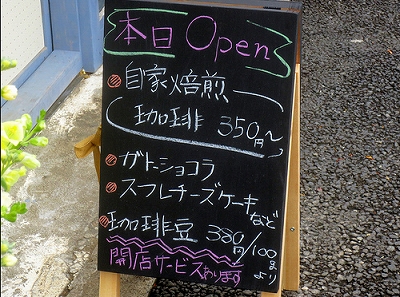 本日 Open
自家焙煎
珈琲 350円〜
ガトーショコラ
スフレチーズケーキ
など
珈琲豆 380円/100gより
開店サービスあります